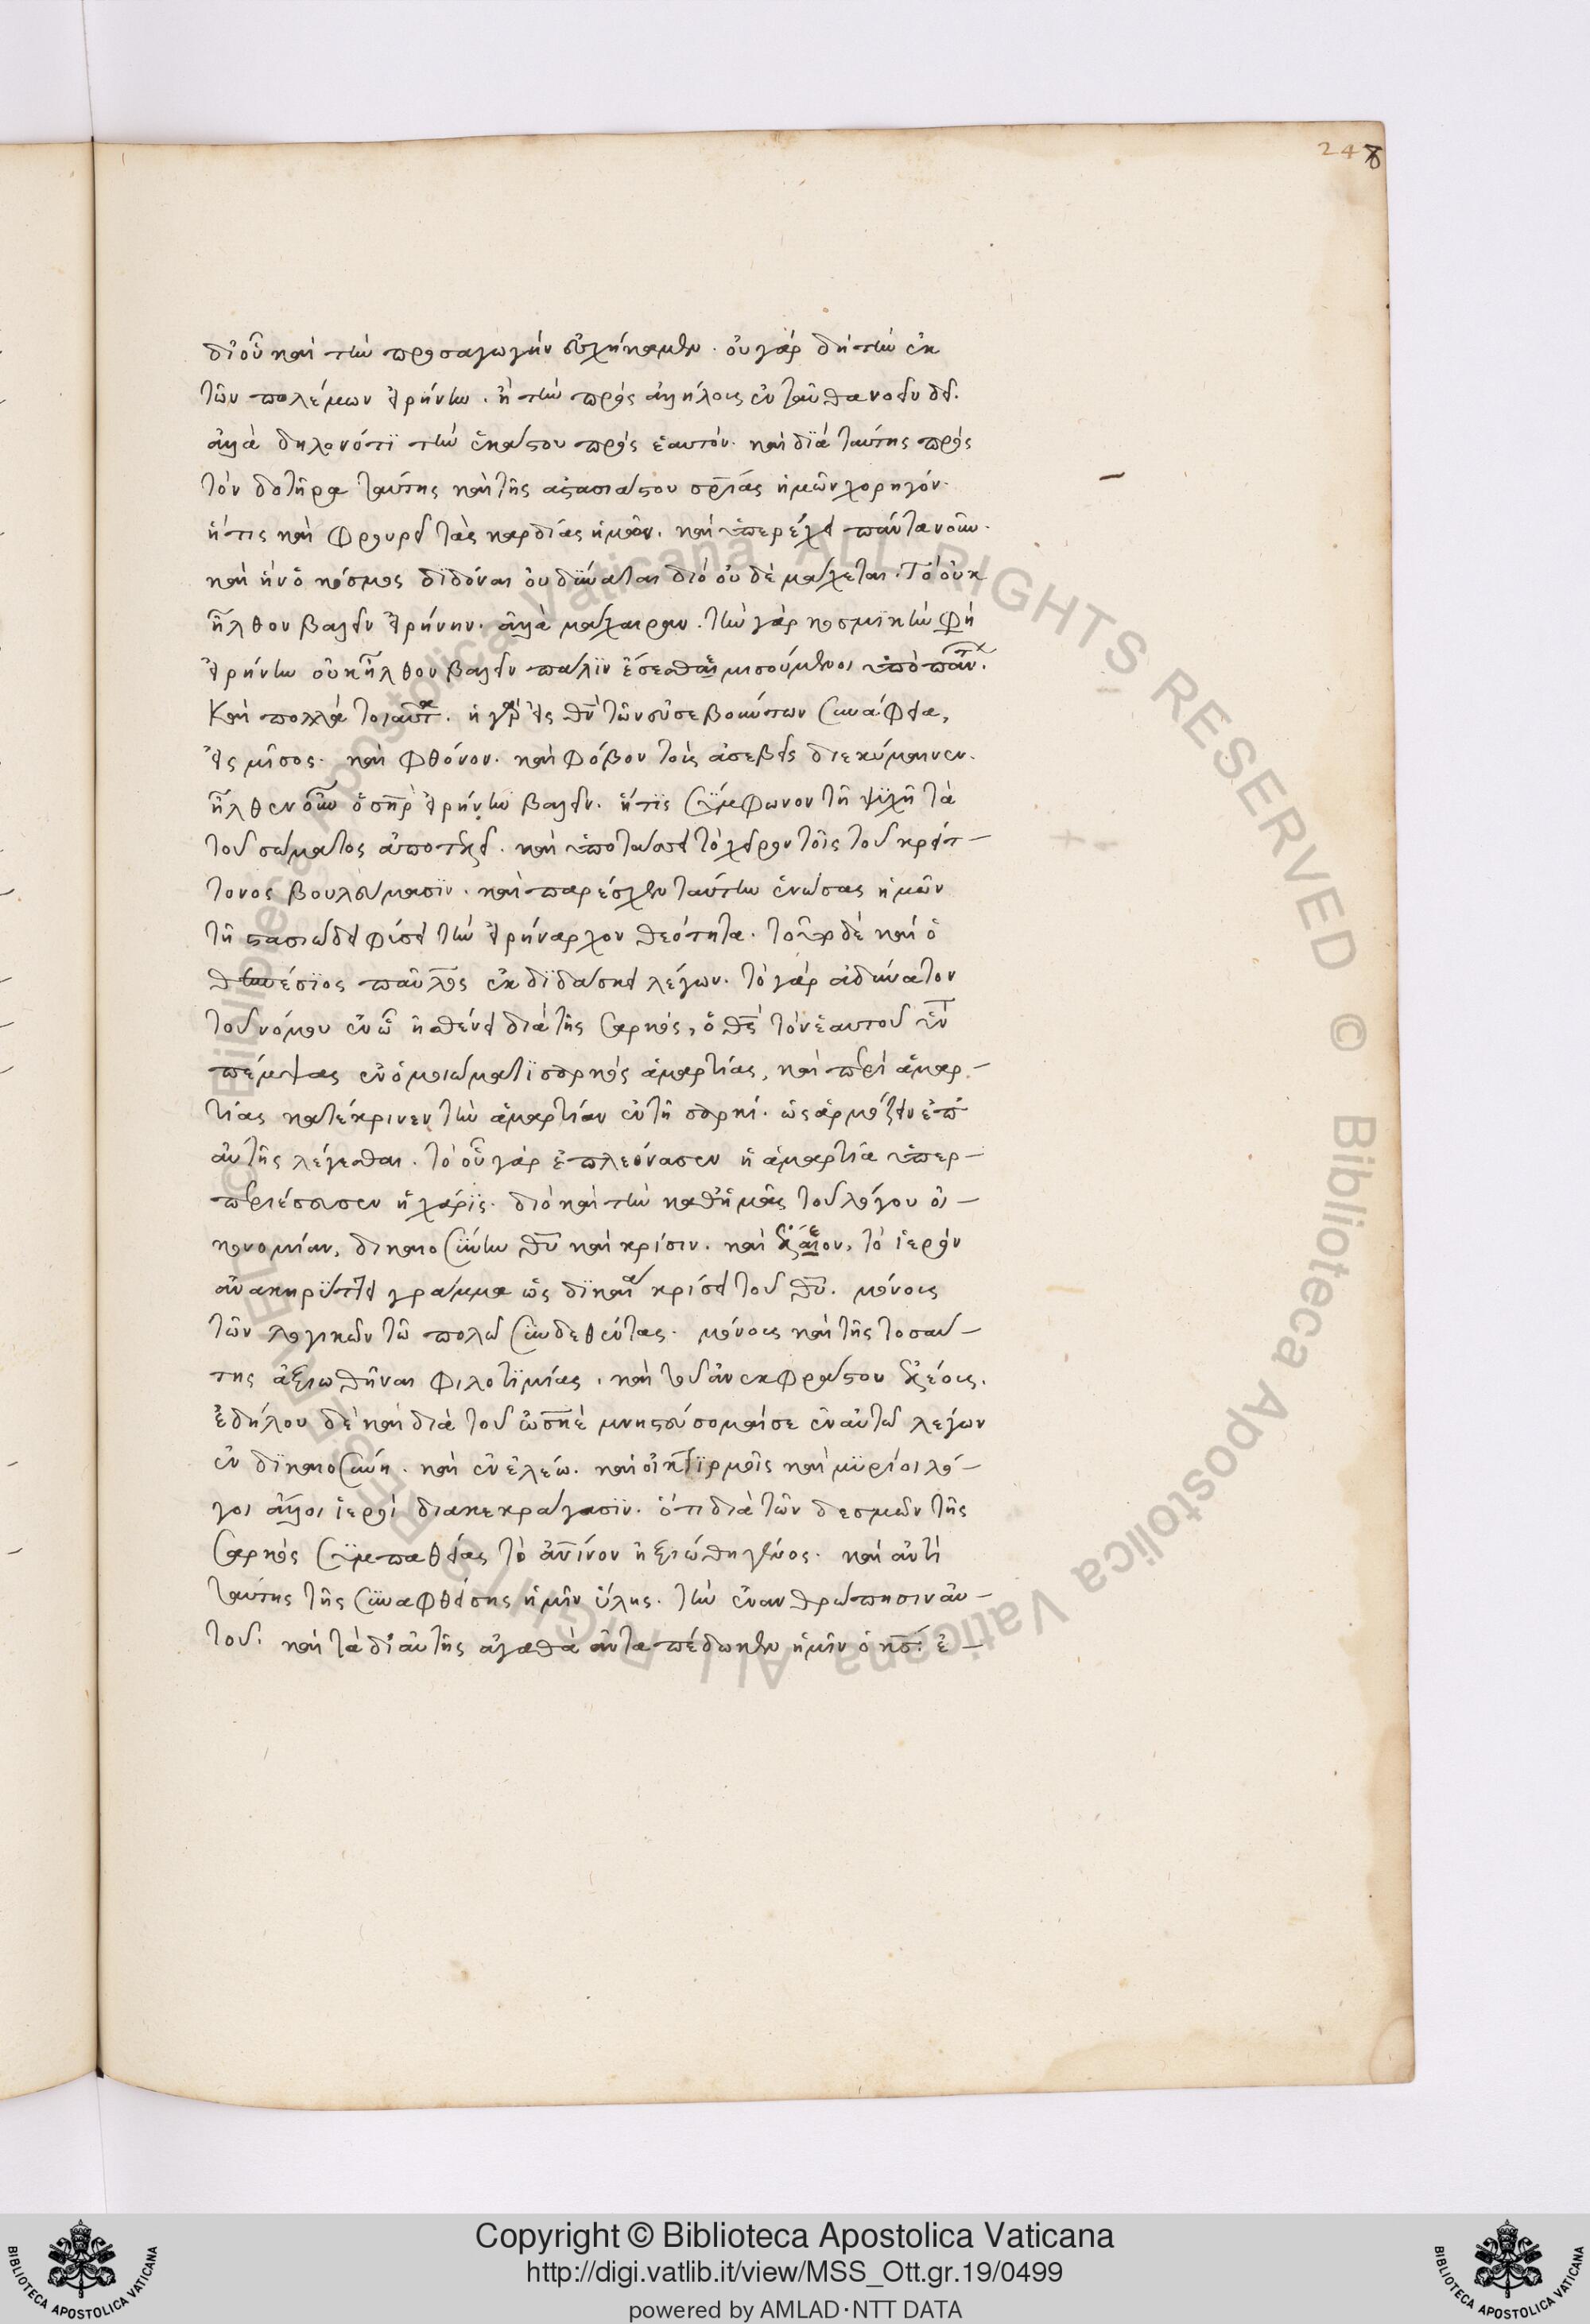 248
δι οὗ καὶ τὴν προσαγωγὴν ἐσχήκαμεν. οὐ γάρ δὴ τὴν ἐκ
τῶν πολέμων εἰρήνην. ἢ τὴν πρὸς ἀλλήλους ἐνταῦθα νοεῖν δεῖ.
ἀλλὰ δηλονότι τὴν ἑκάστου πρὸς ἑαυτόν. καὶ διὰ ταύτης πρὸς
τὸν δοτῆρα ταύτης καὶ τῆς ἀστασιάστου σρίας ἡμῶν χορηγόν.
ἥτις καὶ φρουρεῖ τὰς καρδίας ἡμῶν. καὶ ὑπερέχει πάντα νοῦν.
καὶ ἣν ὁ κόσμος διδόναι οὐ δύναται διὸ οὐδὲ μάχεται. Τὸ οὐκ
ἦλθον βαλεῖν εἰρήνην. ἀλλὰ μάχαιραν. τὴν γὰρ κοσμικὴν φη
εἰρήνην οὐκ ἦλθον βαλεῖν πάλιν ἔσεσθαι μισούμενοι ὑπὸ πάντ.
Καὶ πολλὰ τοιαῦτα. ἡ γὰρ εἰς θν τῶν εὐσεβούντων συνάφεια,
εἰς μῖσος. καὶ φθόνον. καὶ φόβον τοὺς ἀσεβεῖς διεκύμαινεν.
ἦλθεν οὖν ὁ σηρ εἰρήνην βαλεῖν. ἥτις σύμφωνον τῆ ψυχῆ τὰ
τοῦ σώματος ἀποτελεῖ. καὶ ὑποτάσσει τὸ χεῖρον τοῖς τοῦ κρείτ-
τονος βουλεύμασιν. καὶ παρέσχεν ταύτην ἑνώσας ἡμῶν
τῆ στασιώδει φύσει τὴν εἰρήναρχον θεότητα. τοῦτο δὲ καὶ ὁ
θεσπέσιος παῦλος ἐκδιδάσκει λέγων. τὸ γὰρ ἀδύνατον
τοῦ νόμου ἐν ὧ ἠσθένει διὰ τῆς σαρκός, ὁ θς τὸν ἑαυτοῦ υν
πέμψας ἐν ὁμοιώματι σαρκὸς ἁμαρτίας, καὶ περὶ ἁμαρ-
τίας κατέκρινεν τὴν ἁμαρτίαν ἐν τῆ σαρκί. ὡς ἁρμόζειν ἐπ
αὐτῆς λέγεσθαι. τὸ οὗ γὰρ ἐπλεόνασεν ἡ ἁμαρτία ὑπερ-
επερίσσευσεν ἡ χάρις. διὸ καὶ τὴν καθ ἡμᾶς τοῦ λόγου οἰ-
κονομίαν, δικαιοσύνην θυ καὶ κρίσιν. καὶ ἔλεον, τὸ ἱερὸν
ἀνακηρύττει γράμμα ὡς δικαία κρίσει τοῦ θυ. μόνους
τῶν λογικῶν τῶ πηλῶ συνδεθέντας. μόνους καὶ τῆς τοσαύ-
της ἀξιωθῆναι φιλοτιμίας. καὶ τοῦ ἀνεκφράστου ἐλέους.
ἐδήλου δὲ καὶ διὰ τοῦ ὠσηὲ μνηστεύσομαί σε ἐναυτῶ λέγων
ἐν δικαιοσύνη. καὶ ἐν ἐλέω. καὶ οἰκτιρμοῖς καὶ μυρίοι λό-
γοι ἄλλοι ἱεροὶ διακεκράγασιν. ὅτι διὰ τῶν δεσμῶν τῆς
σαρκὸς συμπαθείας τὸ ἀνινον ἠξιώθη γένος. καὶ ἀντὶ
ταύτης τῆς συναφθείσης ἡμῖν ὕλης. τὴν ἐνανθρώπησιν αὐ-
τοῦ. καὶ τὰ δι αὐτῆς ἀγαθὰ ἀνταπέδωκεν ἡμῖν ὁ κς. ἐ-
Copyright © Biblioteca Apostolica Vaticana
http://digi.vatlib.it/view/MSS_Ott.gr.19/0499
powered by AMLAD·NTT DATA
BIBLIOTECA APOSTOLICA VATICANA
BIBLIOTECA APOSTOLICA VATICANA